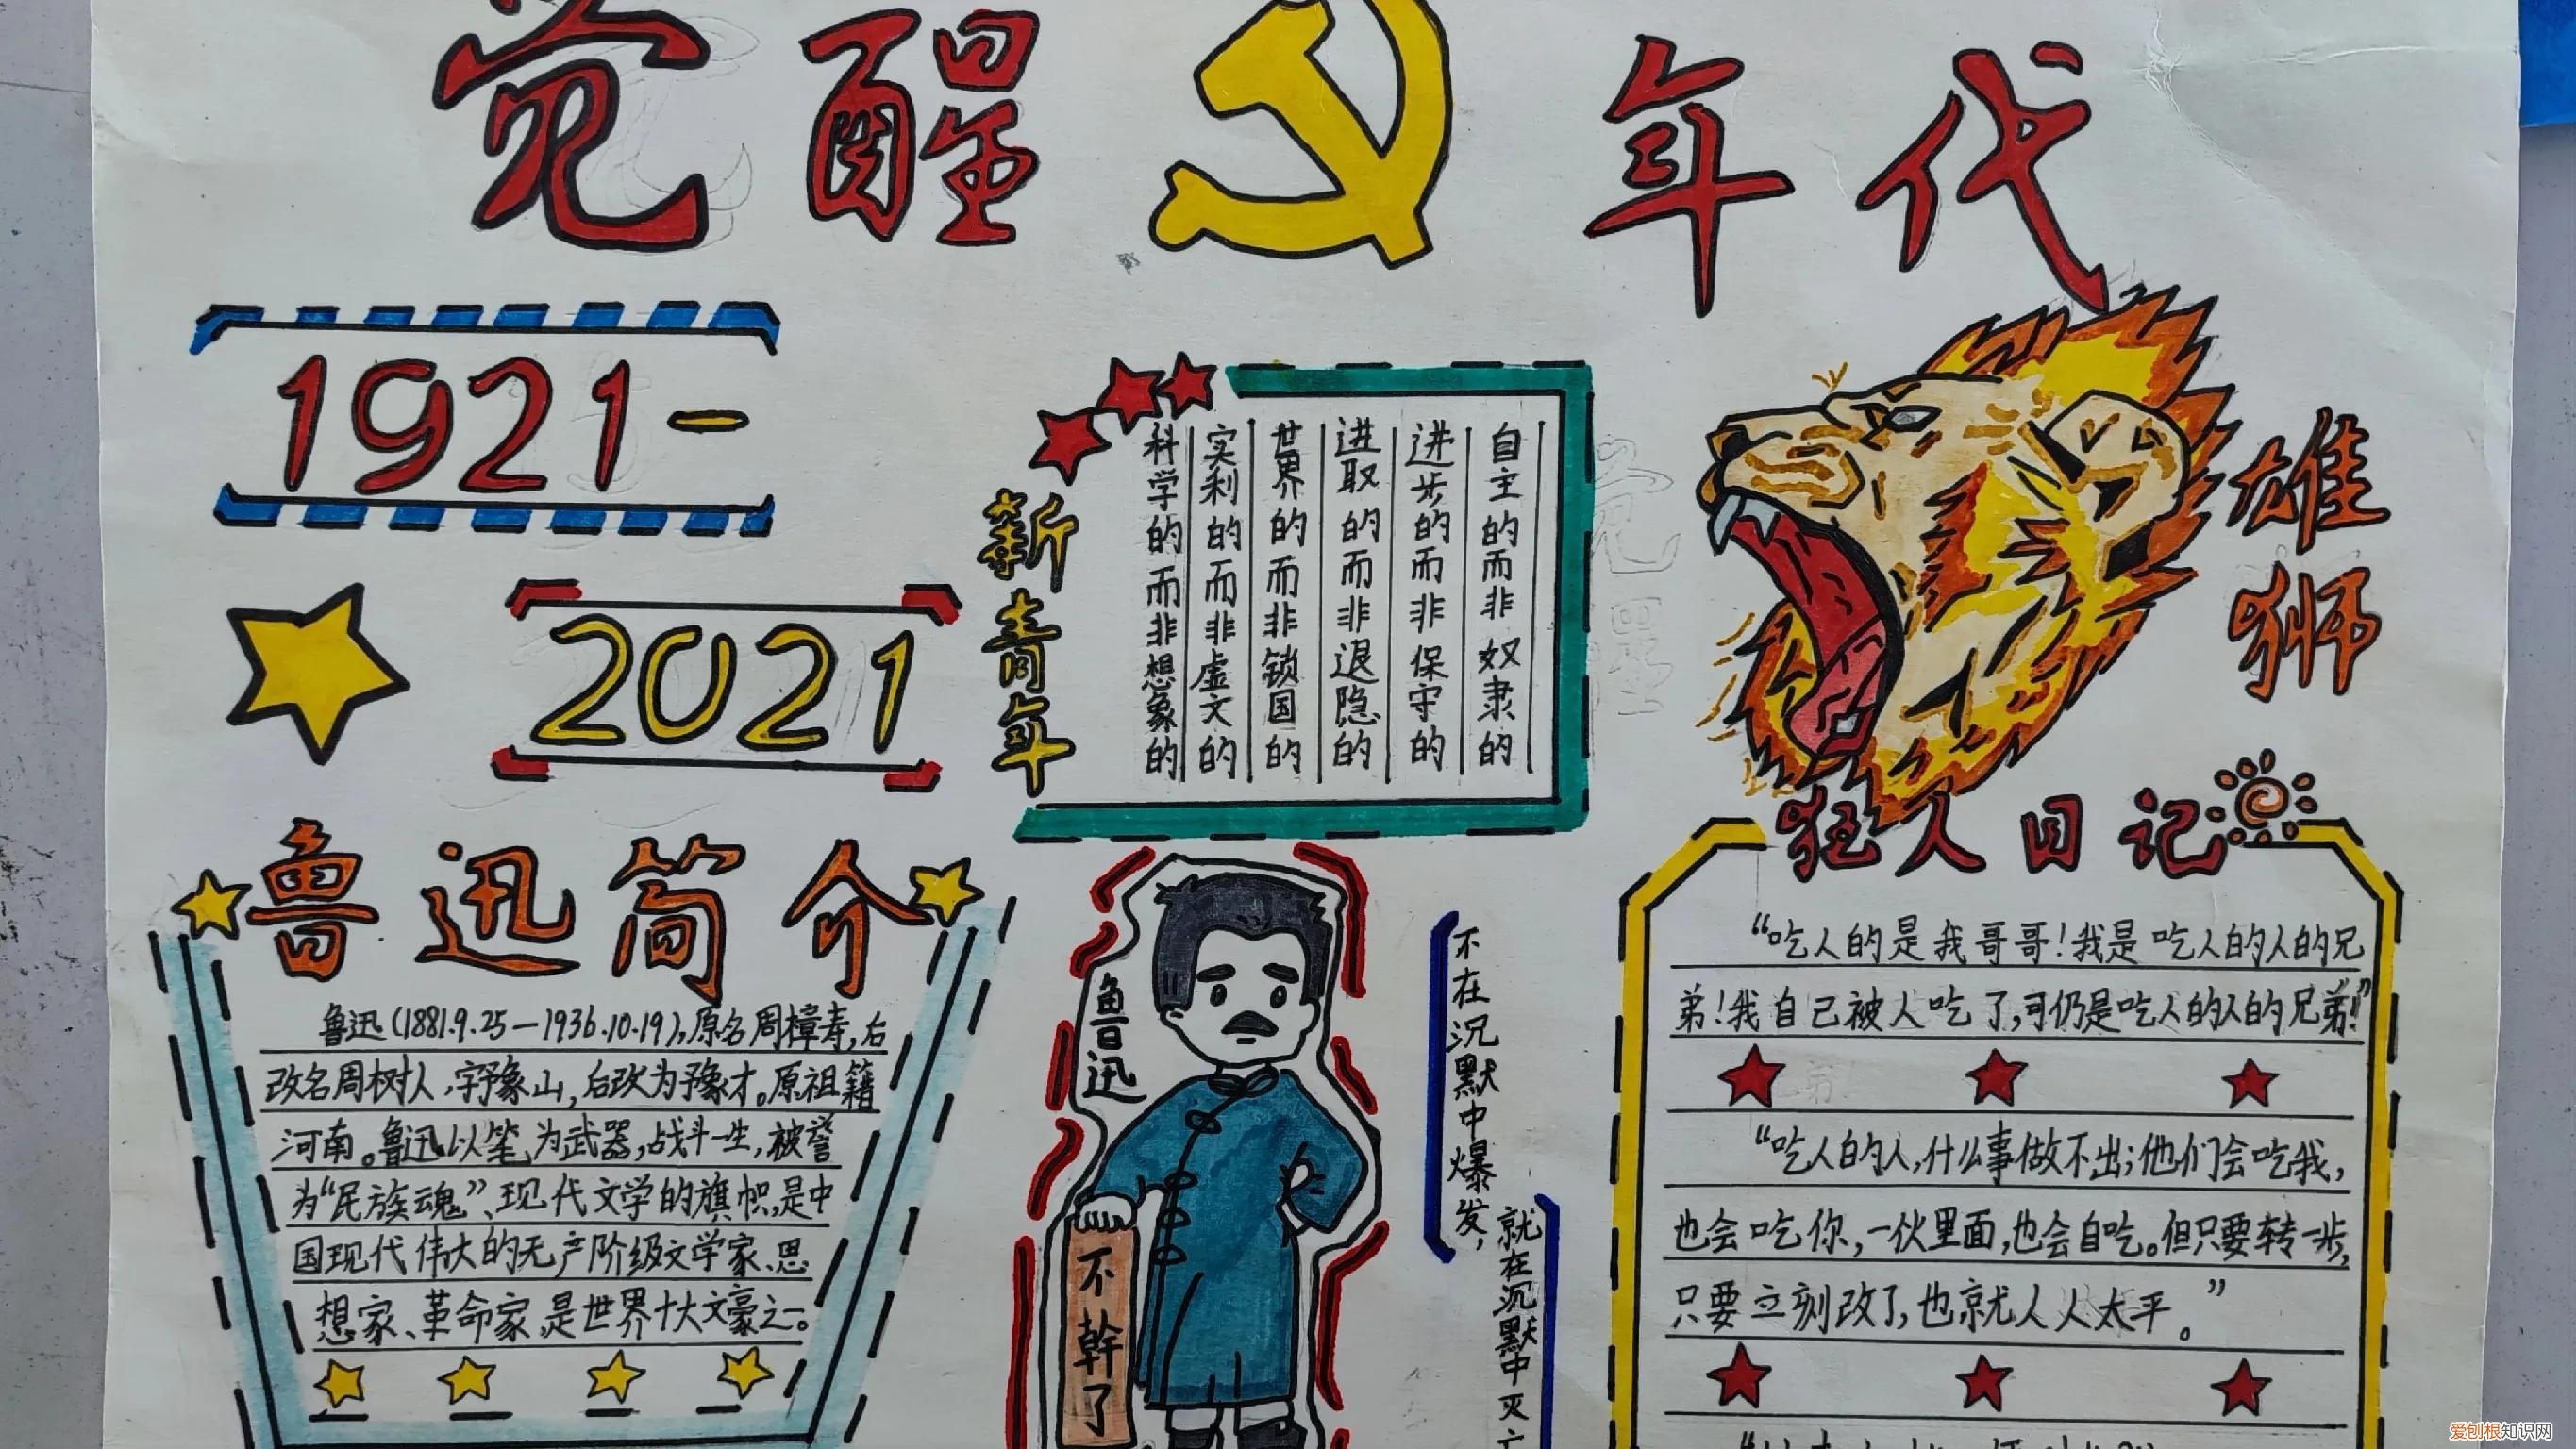 觉醒年代
1921-
2021
新青年
自主的而非奴隶的
进步的而非保守的
进取的而非退隐的
世界的而非锁国的
实利的而非虚文的
科学的而非想象的
雄狮
鲁迅简介
鲁迅(1881.9.25—1936.10.19),原名周樟寿,后
改名周树人,字豫山,后改为豫才。原祖籍
河南。鲁迅以笔为武器,战斗一生,被誉
为“民族魂”、现代文学的旗帜,是中
国现代伟大的无产阶级文学家、思
想家、革命家,是世界十大文豪之一。
鲁迅
不幹了
不在沉默中爆发,
就在沉默中灭亡
狂人日记
“吃人的是我哥哥!我是吃人的人的兄
弟!我自己被人吃了,可仍是吃人的人的兄弟!”
“吃人的人,什么事做不出;他们会吃我,
也会吃你,一伙里面,也会自吃。但只要转一步,
只要立刻改了,也就人人太平。”
爱刨根知识网